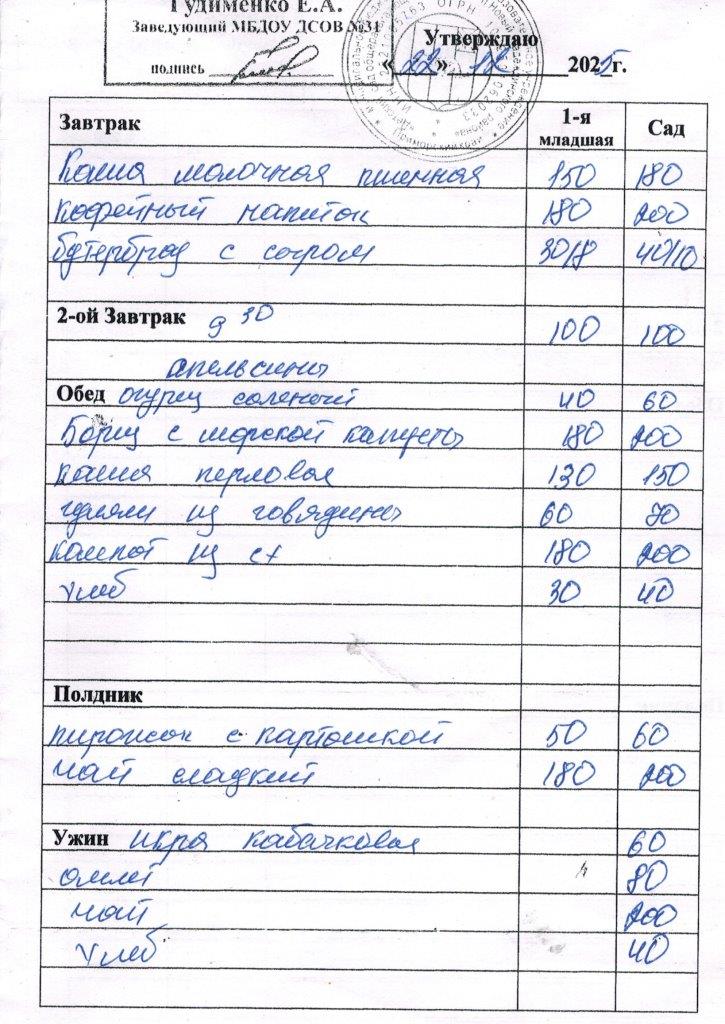 Гудименко Е.А.
Заведующий МБДОУ ДСОВ №31
подпись
Утверждаю
«22» 12 2025г.
Завтрак 1-я младшая Сад
Каша молочная пшенная 150 180
кофейный напиток 180 200
бутерброд с сыром 30/8 40/10
2-ой Завтрак 9 30 100 100
апельсины
Обед огурец соленый 40 60
Борщ с морской капусты 180 200
каша перловая 130 150
гуляш из говядины 60 70
компот из сх 180 200
хлеб 30 40
Полдник
пирожок с картошкой 50 60
чай сладкий 180 200
Ужин икра кабачковая 60
омлет 80
чай 200
хлеб 40